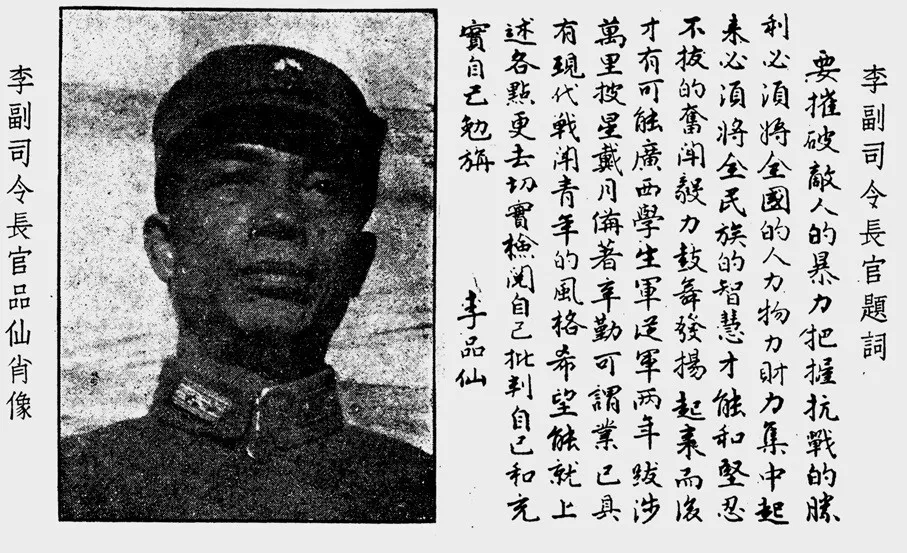 李副司令長官題詞
要摧破敵人的暴力把握抗戰的勝
利必須將全國的人力物力財力集中起
来必須將全民族的智慧才能和堅忍
不拔的奮鬥毅力鼓舞發揚起來而後
才有可能廣西學生軍從軍两年跋涉
萬里披星戴月備著辛勤可謂業已具
有現代戰鬥青年的風格希望能就上
述各點更去切實檢閱自己批判自己和充
實自己勉旃
李品仙
李副司令長官品仙肖像